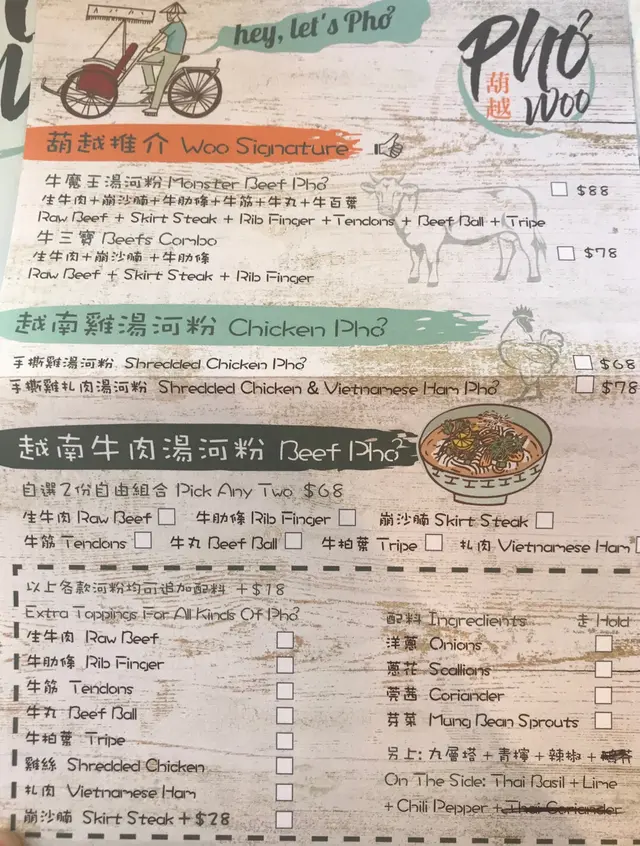 hey, let's Phở
Phở
葫越
Woo
葫越推介 Woo Signature
牛魔王湯河粉 Monster Beef Phở
$88
生牛肉+崩沙腩+牛肋條+牛筋+牛丸+牛百葉
Raw Beef + Skirt Steak + Rib Finger +Tendons + Beef Ball + Tripe
牛三寶 Beefs Combo
$78
生牛肉+崩沙腩+牛肋條
Raw Beef + Skirt Steak + Rib Finger
越南雞湯河粉 Chicken Phở
手撕雞湯河粉 Shredded Chicken Phở
$68
手撕雞扎肉湯河粉 Shredded Chicken & Vietnamese Ham Phở
$78
越南牛肉湯河粉 Beef Phở
自選2份自由組合 Pick Any Two $68
生牛肉 Raw Beef 牛肋條 Rib Finger 崩沙腩 Skirt Steak
牛筋 Tendons 牛丸 Beef Ball 牛柏葉 Tripe 扎肉 Vietnamese Ham
以上各款河粉均可追加配料 +$18
Extra Toppings For All Kinds Of Phở
生牛肉 Raw Beef
牛肋條 Rib Finger
牛筋 Tendons
牛丸 Beef Ball
牛柏葉 Tripe
雞絲 Shredded Chicken
扎肉 Vietnamese Ham
崩沙腩 Skirt Steak +$28
配料 Ingredients 走 Hold
洋蔥 Onions
蔥花 Scallions
芫茜 Coriander
芽菜 Mung Bean Sprouts
另上: 九層塔 + 青檸 + 辣椒 +
On The Side: Thai Basil + Lime
+ Chili Pepper + Thai Coriander